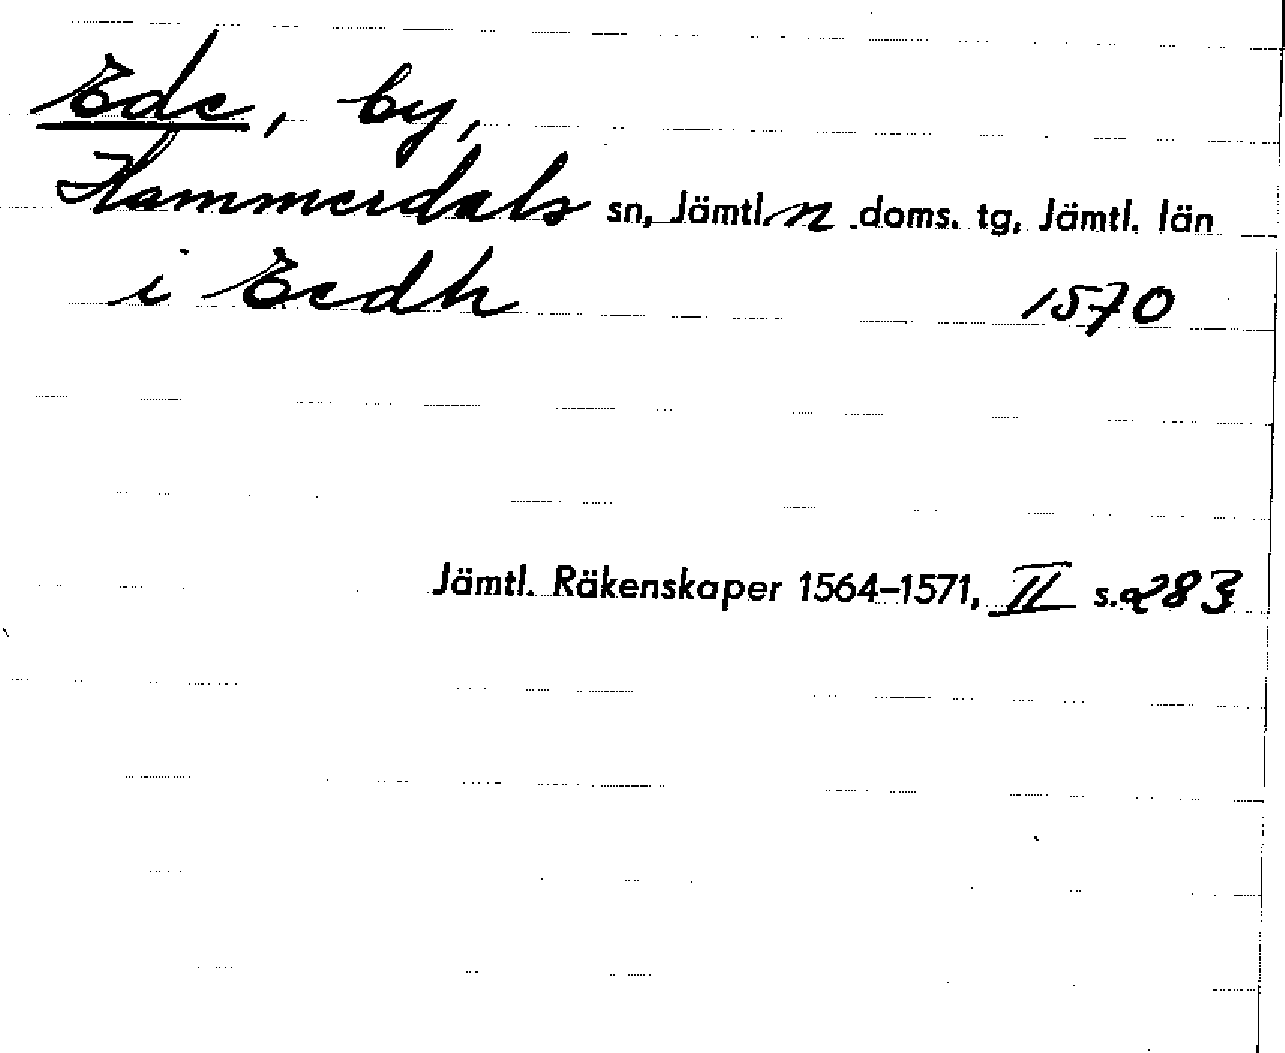 Ede, by,
Hammerdals sn, Jämtl. n doms. tg, Jämtl. län
i Eedh 1570
Jämtl. Räkenskaper 1564–1571, II s. 283